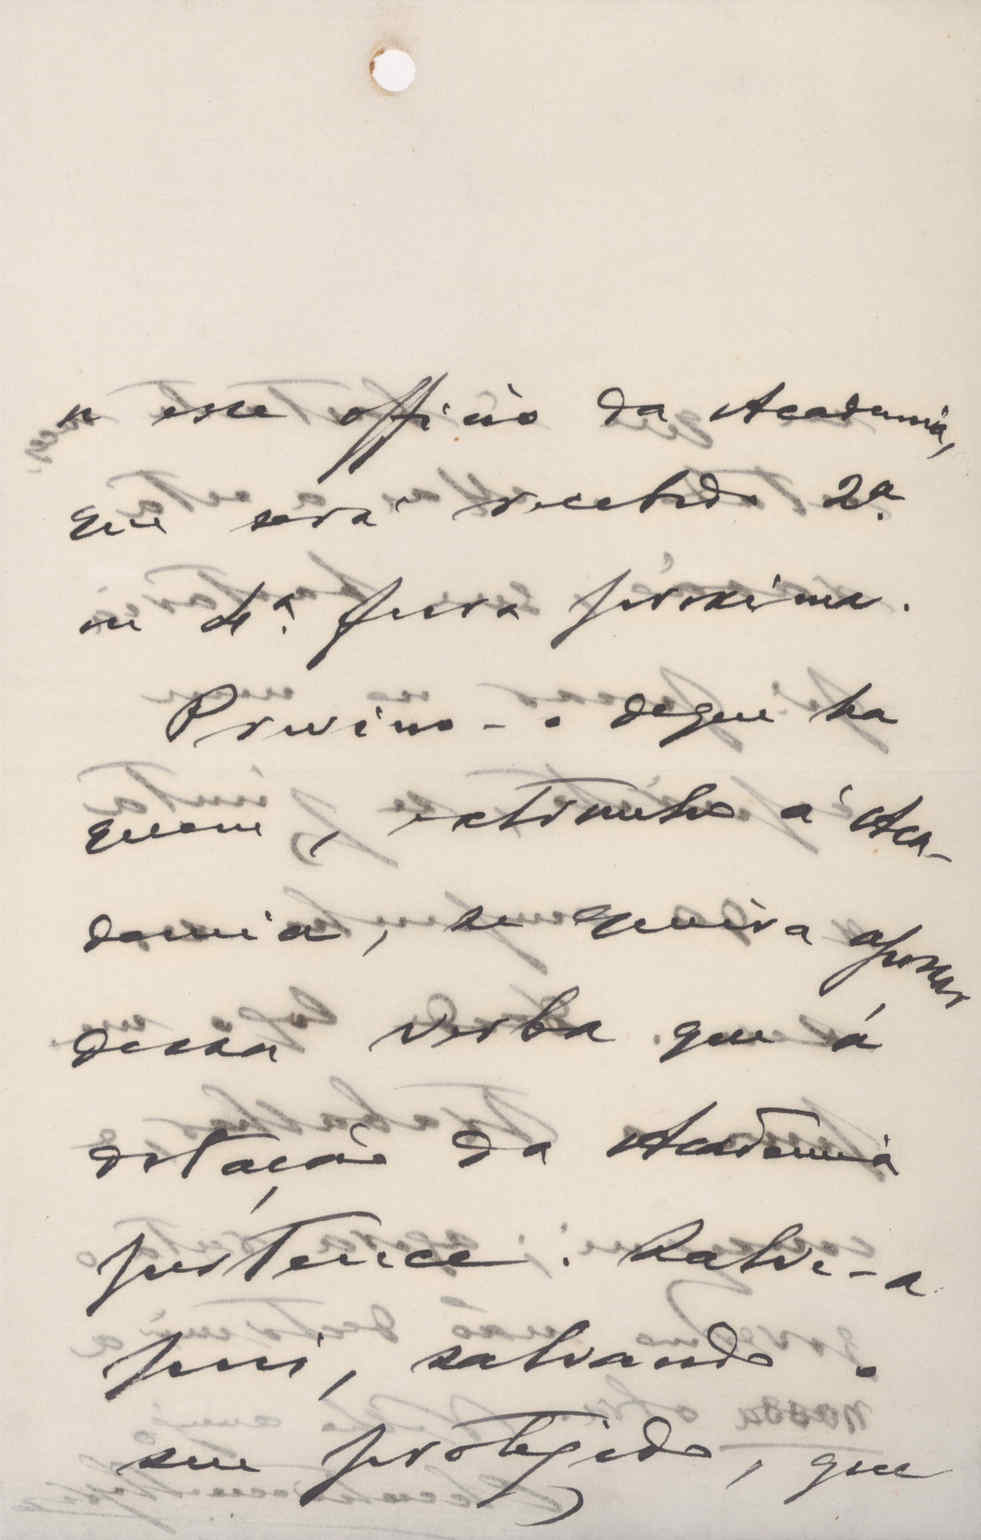 a esse officio da Academia,
que será recebido 2ª
ou 4ª feira proxima.
Previno-o de que ha
quem, extranho á Aca-
demia, se queira apossar
dessa verba que á
dotação da Academia
pertence. Salve-a
pois, salvando o
seu protegido, que